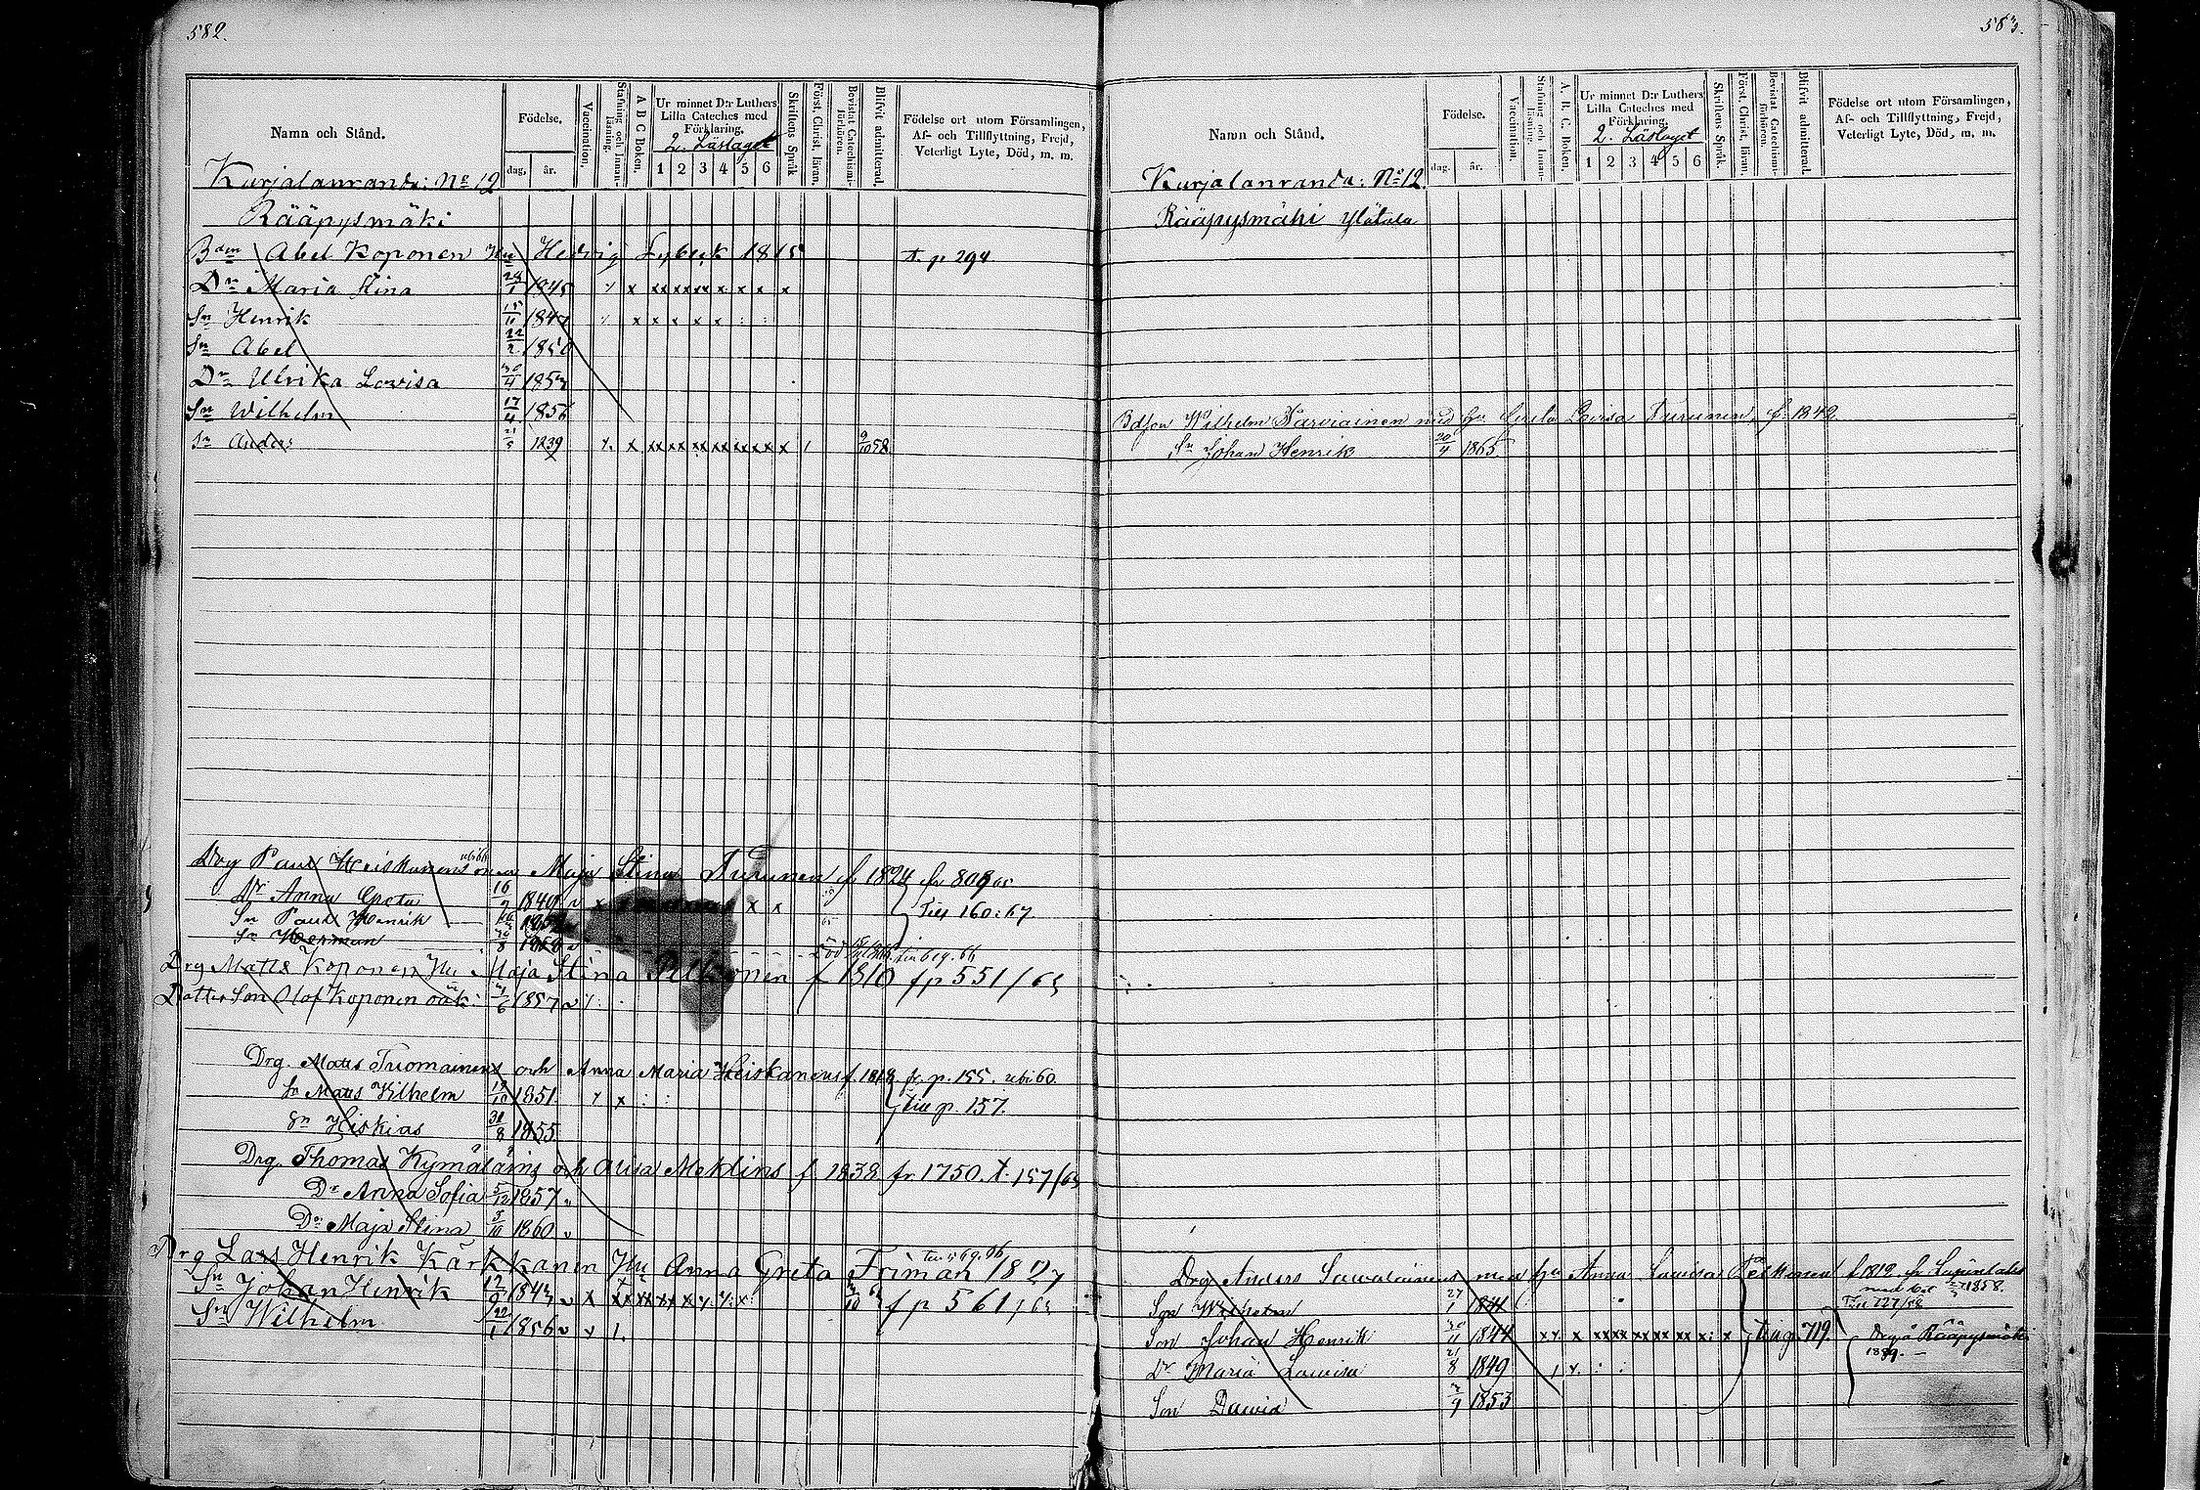 582.
Namn och Stånd.
Födelse.
dag. år.
Vaccination.
Stafning och Innanläsning.
A B C Boken.
Ur minnet D:r Luthers Lilla Cateches med Förklaring.
2. Läslaget
1 2 3 4 5 6
Skriftens Språk
Först. Christ. läran.
Bevistat Catechismiförhören.
Blifvit admitterad.
Födelse ort utom Församlingen, Af- och Tillflyttning, Frejd, Veterligt Lyte, Död, m. m.
Kurjalanranda: No 12
Rääpysmäki
Bden Abel Koponen Hu Hedvig Lybeck 1815 t. p 294
Dr Maria Stina 1845
Sn Henrik 1847
Sn Abel 22/2 1850
Dr Ulrika Lovisa 1853
Sn Wilhelm 17/4 1856
Sn Anders 1839 9/10 58
Drg Paul Heiskanens Maja Stina Turunen f. 1824 fr 809
Dr Anna Greta 1840 Till 160:67
Sn Paul Henrik
Sn Herman
Drg Matts Koponen Hu Maja Stina Pelkonen f 1810 f p 551/63
Dotter Son Olof Koponen oäk: 1857
Drg. Matts Tuomainens och Anna Maria Heiskanens f. 1818 fr. p. 155. ubi 60.
Sn Matts Vilhelm 19/10 1851 till p. 157.
Sn Hiskias 31/8 1855
Drg. Thomas Kymäläins och Lisa Meklins f. 1838 fr. 1750. t. 157/63
Dr Anna Sofia 5/12 1857
Dr Maja Stina 5/10 1860
Drg Lars Henrik Kärkkänen Hu Anna Greta Friman 1827
Sn Johan Henrik 1843 f p 561/63
Sn Wilhelm 22/1 1856
583.
Namn och Stånd.
Födelse.
dag. år.
Vaccination.
Stafning och Innanläsning.
A. B. C. Boken.
Ur minnet D:r Luthers Lilla Cateches med Förklaring.
2. Läslaget
1 2 3 4 5 6
Skriftens Språk.
Först. Christ. läran.
Bevistat Catechismiförhören.
Blifvit admitterad.
Födelse ort utom Församlingen, Af- och Tillflyttning, Frejd, Veterligt Lyte, Död, m. m.
Kurjalanranda: No 12.
Rääpysmäki Ylätalo
Bdson Wilhelm Karviainen med hu Greta Lovisa Turunen, f. 1842.
Sn Johan Henrik 20/4 1865
Drg Anders Sawolainens med hu Anna Lowisa Pelkonen f 1812
Son Wilhelm 27/1 1841 Till 727/58
Son Johan Henrik 30/11 1844 Drg å Rääpysmäki
Dr Maria Lowisa 21/8 1849
Son Dawid 1853